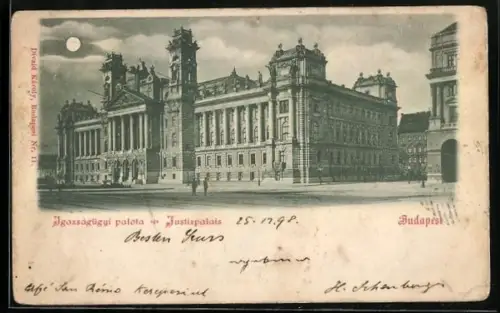 Divald Károly, Budapest Nr. 11.
Igazságügyi palota ✦ Justizpalais
Budapest
25. 11. 98.
Besten Gruss
H. Schönberger
San Remo